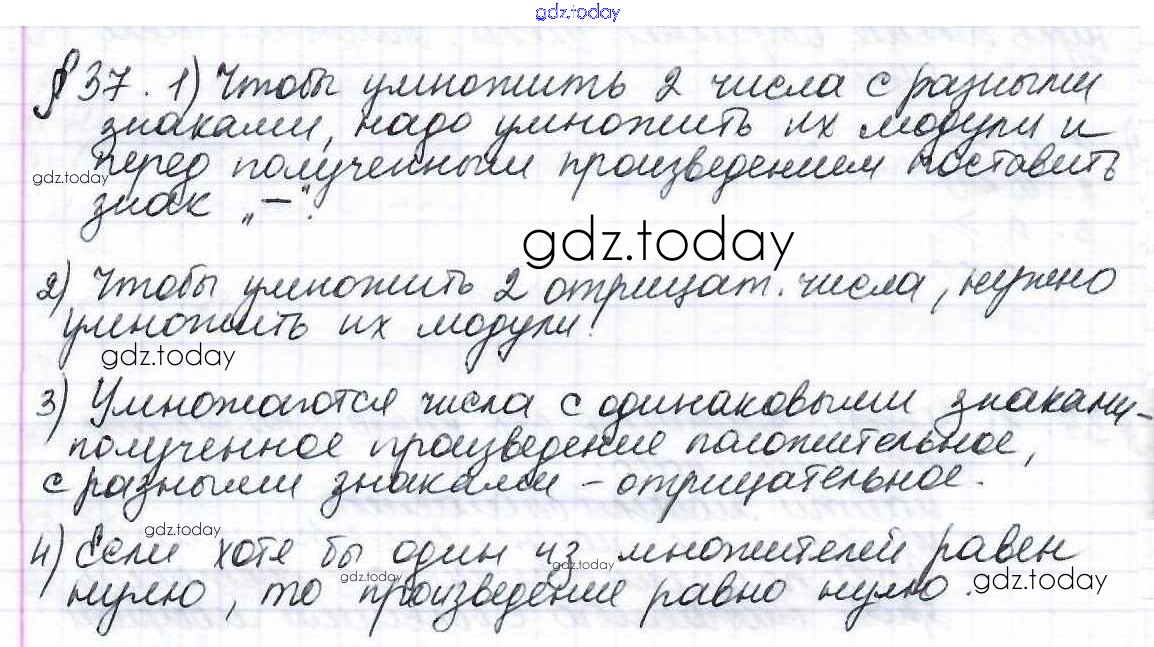 gdz.today
§ 37. 1) Чтобы умножить 2 числа с разными
знаками, надо умножить их модули и
перед полученным произведением поставить
gdz.today
знак „–“.
gdz.today
2) Чтобы умножить 2 отрицат. числа, нужно
умножить их модули.
gdz.today
3) Умножаются числа с одинаковыми знаками -
полученное произведение положительное,
с разными знаками - отрицательное.
gdz.today
4) Если хотя бы один из множителей равен
gdz.today
gdz.today
gdz.today
нулю, то произведение равно нулю.